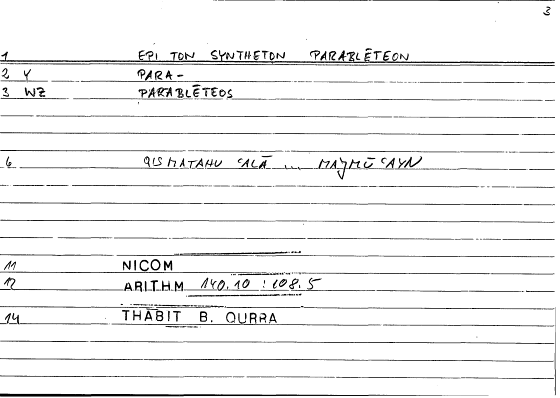 3
1 EPI TON SYNTHETON PARABLĒTEON
2 Y PARA-
3 WZ PARABLĒTEOS
6 QISMATAHU ʿALĀ ... MAJMŪʿAYN
11 NICOM
12 ARITHM 140.10 : 108.5
14 THABIT B. QURRA